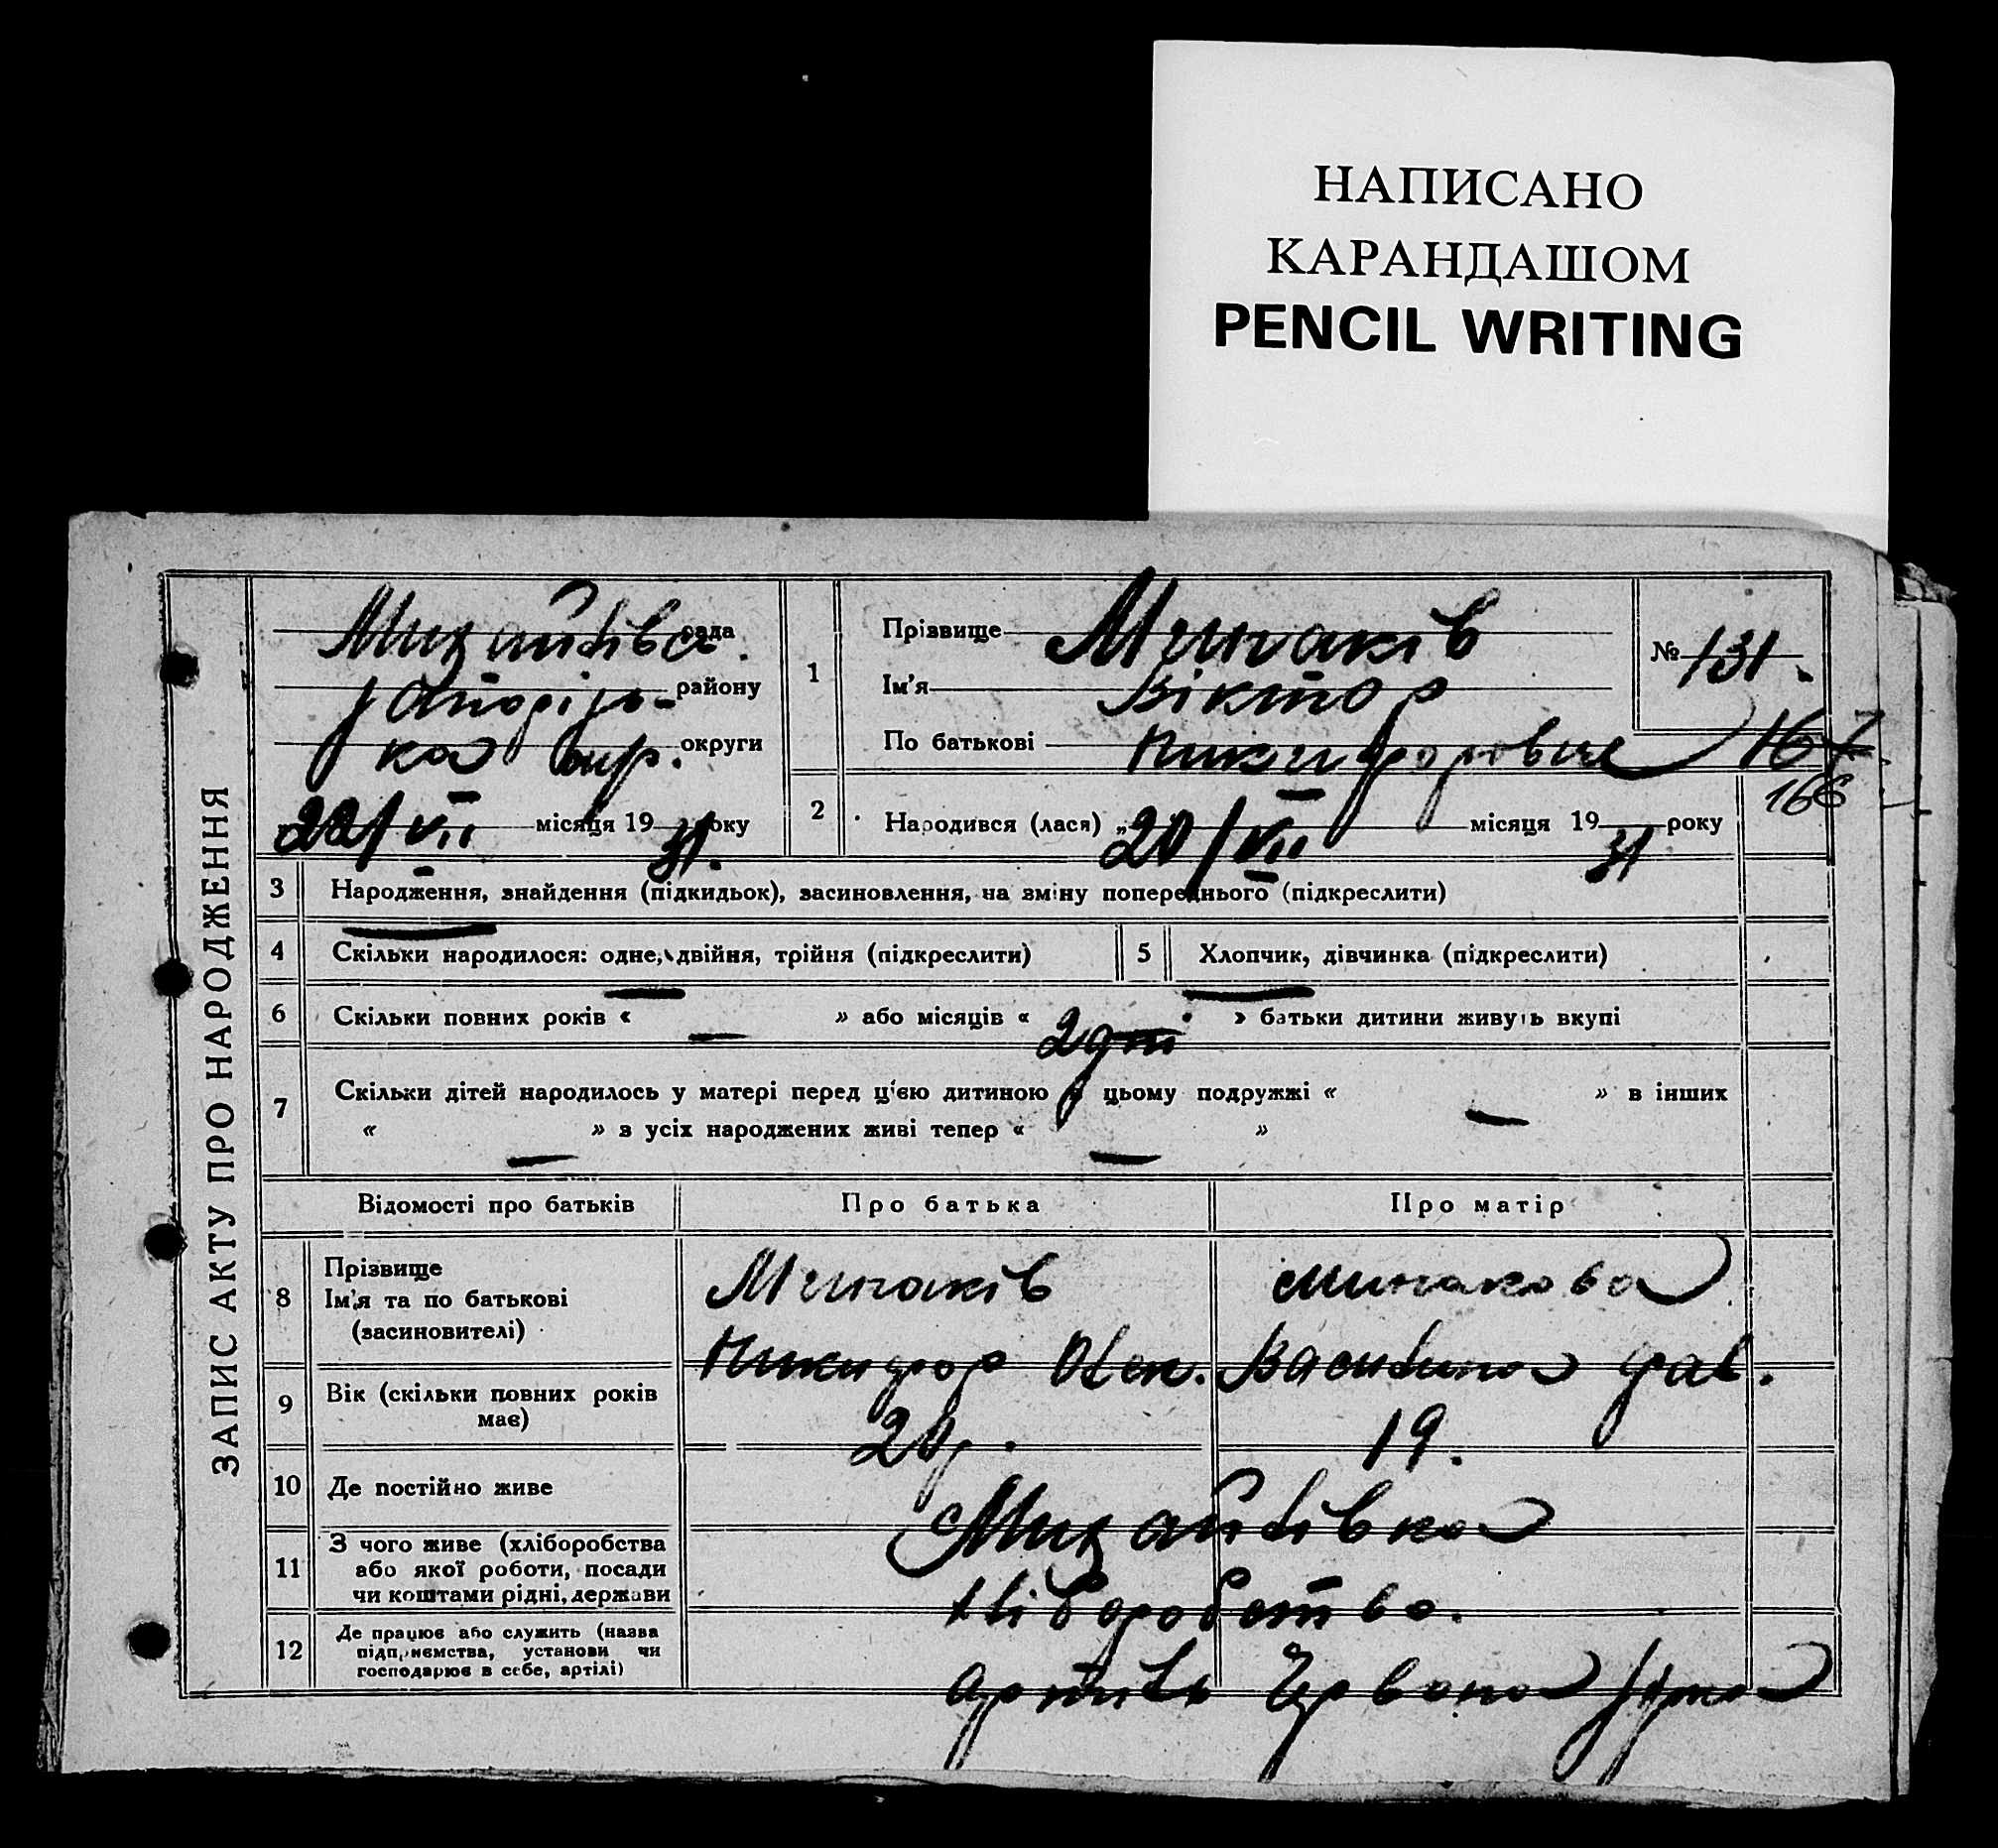 НАПИСАНО
КАРАНДАШОМ
PENCIL WRITING
ЗАПИС АКТУ ПРО НАРОДЖЕННЯ
Михайлівсь. рада
Запорізь- району
ка округи
22/VII місяця 19 31. року
1 Прізвище Минаків
Ім'я Віктор
По батькові Никифорович
№ 131.
167
166
2 Народився (лася) „20/VII місяця 19 31 року
3 Народження, знайдення (підкидьок), засиновлення, на зміну попереднього (підкреслити)
4 Скільки народилося: одне, двійня, трійня (підкреслити) 5 Хлопчик, дівчинка (підкреслити)
6 Скільки повних років « — » або місяців « 2 » батьки дитини живуть вкупі
7 Скільки дітей народилось у матері перед ц'єю дитиною у цьому подружжі « — » в інших
« — » з усіх народжених живі тепер « — »
Відомості про батьків Про батька Про матір
8 Прізвище
Ім'я та по батькові
(засиновителі)
Минаків Минакова
Никифор Олек. Василина
9 Вік (скільки повних років
має)
20р. 19.
10 Де постійно живе Михайлівка
11 З чого живе (хліборобства
або якої роботи, посади
чи коштами рідні, держави
Хліборобство.
12 Де працює або служить (назва
підприємства, установи чи
господарює в себе, артілі)
артиль Червона